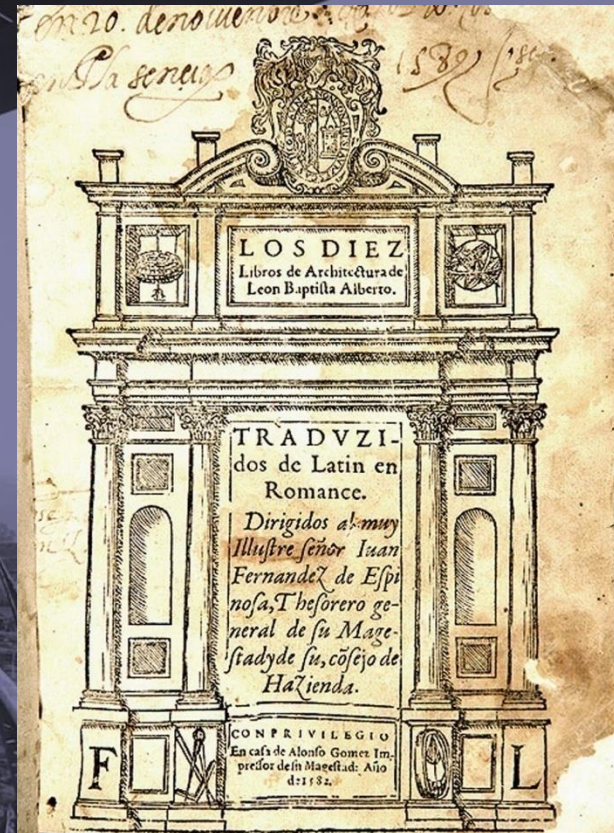 En 20. de nouienbre
en Plasencia
1582
LOS DIEZ
Libros de Architectura de
Leon Baptista Alberto.
TRADVZI-
dos de Latin en
Romance.
Dirigidos al muy
Illustre señor Iuan
Fernandez de Eſpi
noſa, Theſorero ge-
neral de ſu Mage-
ſtad y de ſu, cõſejo de
Hazienda.
CON PRIVILEGIO
En caſa de Alonſo Gomez Im-
preſſor de ſu Mageſtad: Año
de 1582.
F
L